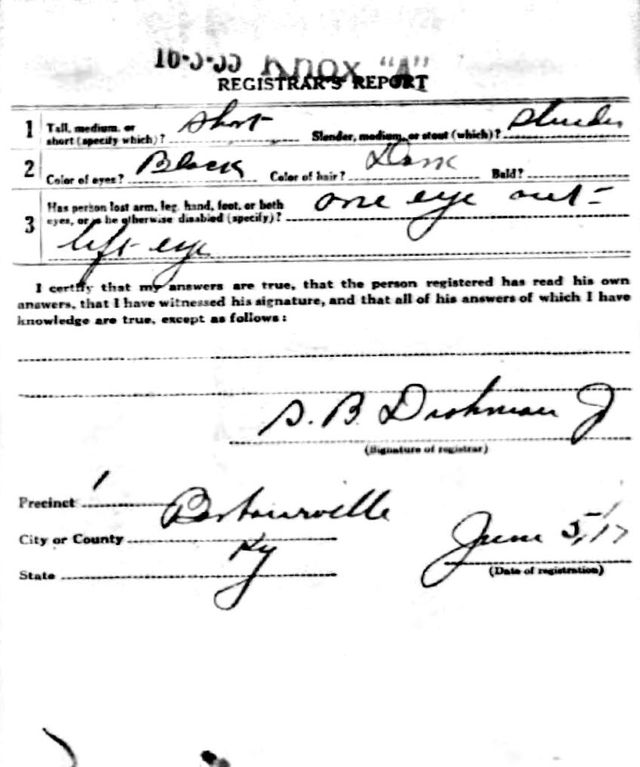 16-3-35 Knox "A"
REGISTRAR'S REPORT
1 Tall, medium, or short (specify which)? short Slender, medium, or stout (which)? slender
2 Color of eyes? Black Color of hair? Dark Bald?
3 Has person lost arm, leg, hand, foot, or both
eyes, or is he otherwise disabled (specify)? one eye out-
left eye
I certify that my answers are true, that the person registered has read his own
answers, that I have witnessed his signature, and that all of his answers of which I have
knowledge are true, except as follows:
S. B. Dishman Jr
(Signature of registrar)
Precinct 1
City or County Barbourville
State Ky
June 5/17
(Date of registration)